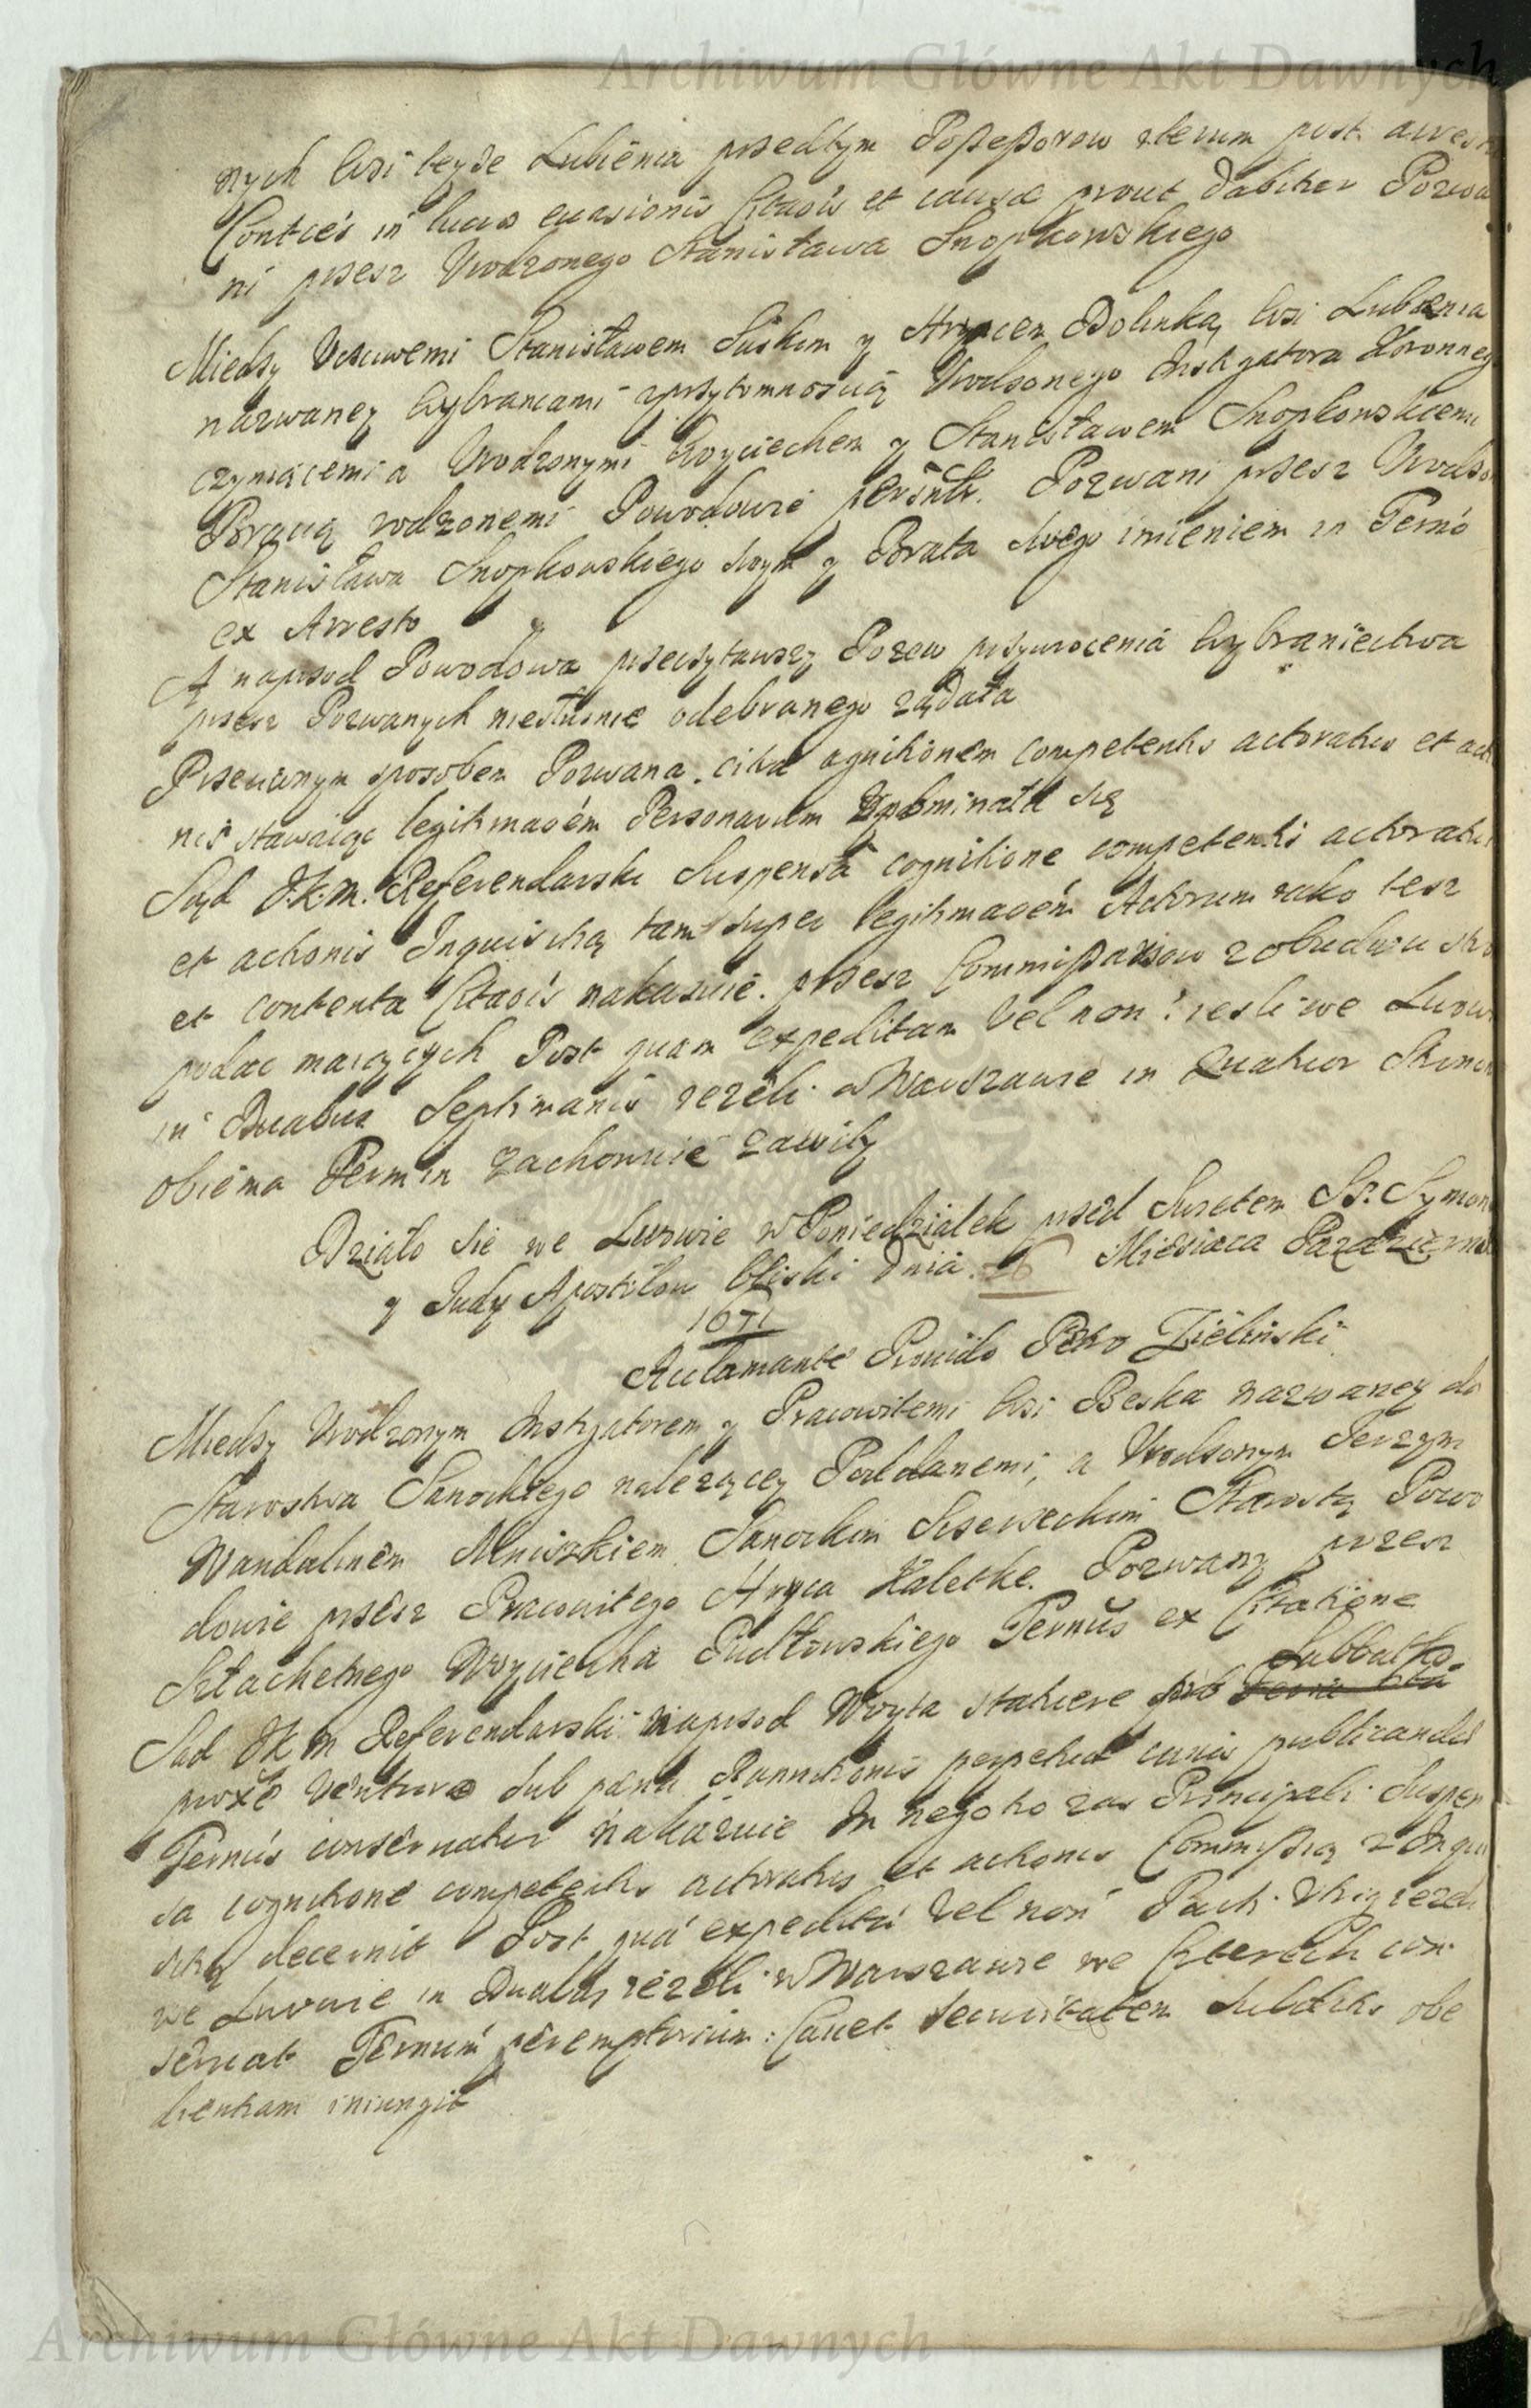 Archiwum Główne Akt Dawnych
nych wsi teyże Lubienia przedtym Possessorow iterum post arres
Contēs in lució evasionis Citaōis et causæ prout dabitur Pozwa
ni przesz Urodzonego Stanisława Snopkowskiego
Miedzy Uczciwemi Stanisławem Suskim y Hrycem Dolinką wsi Lubienia
nazwaney wybrancami zprzytomnoscią Urodzonego Instygatora Koronneg
czyniącemi a Urodzonymi Woyciechem y Stanisławem Snopkowskiemi
Bracią rodzonemi Powodowie persnlr. Pozwani przesz Urodzo
Stanisława Snopkowskiego swym y Brata swego imieniem in Termō
ex Arresto
A naprzod Powodowa przeczytawszy Pozew przywrocenia wybraniectwa
przesz Pozwanych niesłusznie odebranego żądała
Przeciwnym sposobem Pozwana. citra agnitionem competentis actoratus et acti
nis stawaiąc legitimaōem Personarum upominała się
Sąd J.K.M. Referendarski Suspensa cognitione competentis actoratus
et actionis Inquisitią tam super legitimaōem Actorum iako tesz
et contenta Citaōis nakazuie. przesz Commissarzow z obudwu stro
podac maiących Post quam expeditam vel non: iesli we Lwow
in Duabus Septimanis ieżeli w Warszawie in Quatuor Stron
obiema Termin zachowuie zawity
Działo sie we Lwowie w Poniedziałek przed Swietem SS. Symon
y Judy Apostołow bliski dnia 26 Miesiaca Pazdziernik
1671
Acclamante Provido Petro Zielinski
Miedzy Urodzonym Instygatorem y Pracowitemi wsi Beska nazwaney do
Starostwa Sanockiego należącey Poddanemi, a Urodzonym Jerzym
Wandalinem Mniszkiem Sanockim Szczereckim Starostą Powo
dowie przesz Pracowitego Hryca Kaletke. Pozwany przez
Szlachetnego Woyciecha Pudłowskiego Termus ex Citatione
Sabbatho
Sad JKM Referendarski naprzod Woyta statuere pro
proxe venturo sub pæna Bannitionis perpetuæ cuius publicandæ
Termus conservatur nakazuie In negotio zas Principali Suspen
sa cognitione competentis actoratus et actionis Commissią z Inqui
sitią decernit Post quā expeditā vel non Pach. Utrig ieżeli
we Lwowie in Duabus ieżeli w Warszawie we Czterech con
servat Termin peremptorium: Cavet securitatem Subditis obe
dientiam iniungit
Archiwum Główne Akt Dawnych